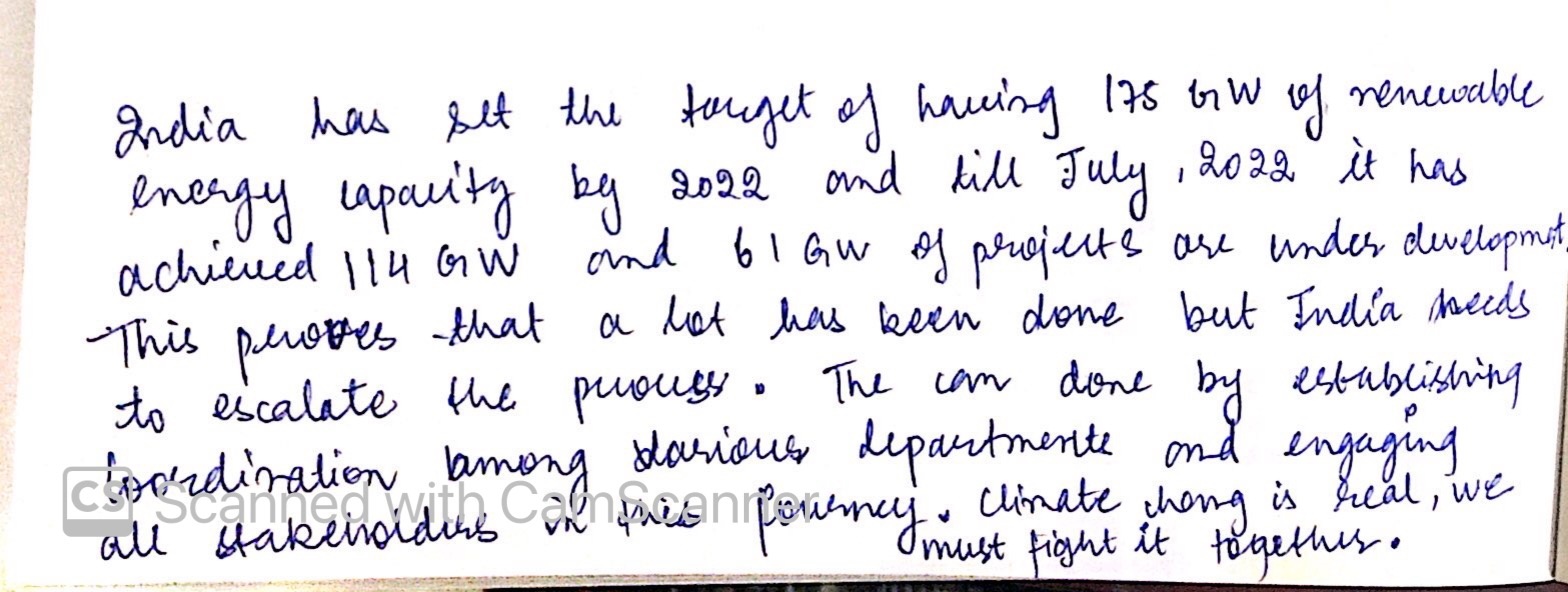 India has set the target of having 175 GW of renewable
energy capacity by 2022 and till July, 2022 it has
achieved 114 GW and 61 GW of projects are under developmet.
This proves that a lot has been done but India needs
to escalate the process. The can done by establishing
coordination among various departments and engaging
all stakeholders in this journey. Climate chang is real, we
must fight it together.
CS Scanned with CamScanner